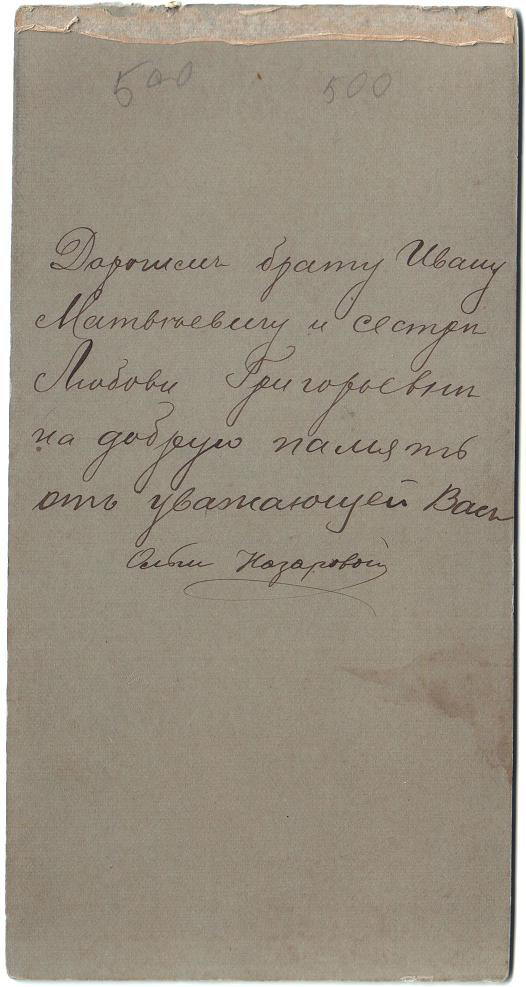 500 500
Дорогимъ брату Ивану
Матвѣевичу и сестрѣ
Любови Григорьевнѣ
на добрую память
отъ уважающей Васъ
Ольги Назаровой